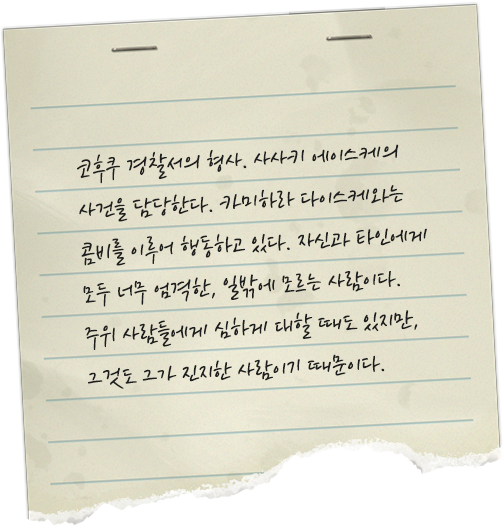 코후쿠 경찰서의 형사. 사사키 에이스케의
사건을 담당한다. 카미하라 다이스케와는
콤비를 이루어 행동하고 있다. 자신과 타인에게
모두 너무 엄격한, 일밖에 모르는 사람이다.
주위 사람들에게 심하게 대할 때도 있지만,
그것도 그가 진지한 사람이기 때문이다.